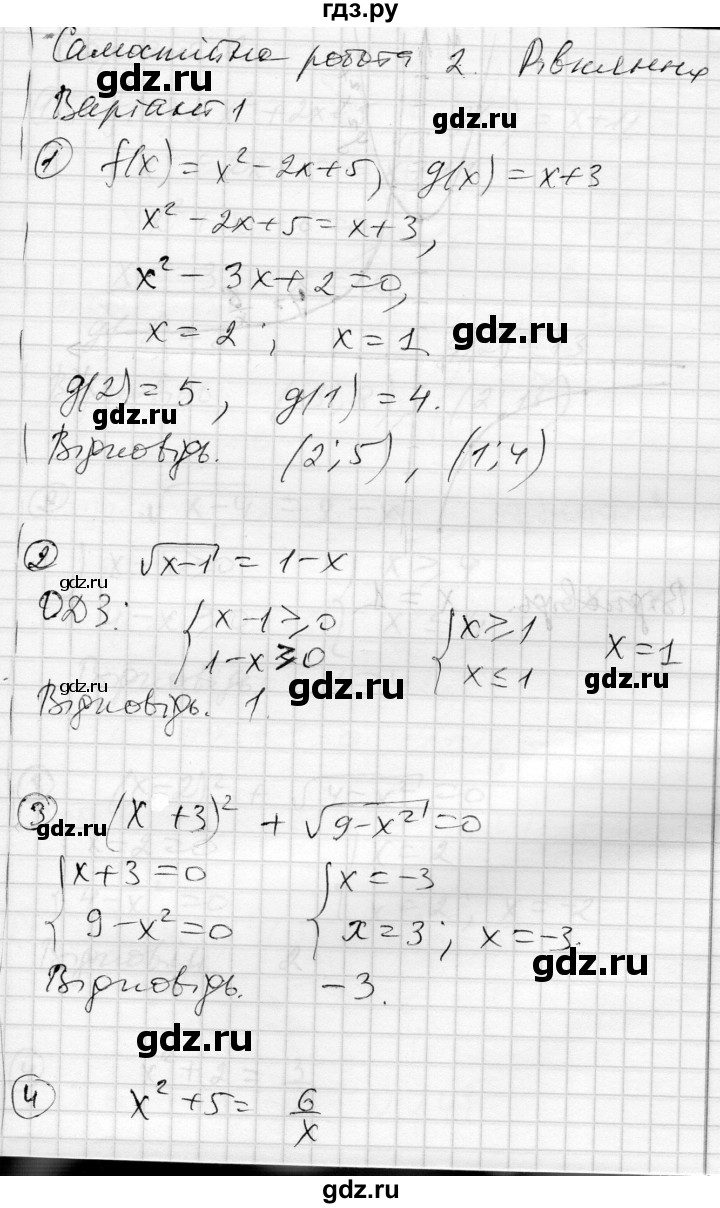 гдз.ру
Самостійна робота 2. Рівняння
gdz.ru
Варіант 1
gdz.ru
1 f(x) = x² - 2x + 5, g(x) = x + 3
x² - 2x + 5 = x + 3,
x² - 3x + 2 = 0,
x = 2; x = 1
gdz.ru
g(2) = 5, g(1) = 4.
gdz.ru
Відповідь. (2; 5), (1; 4)
2 √x-1 = 1 - x
gdz.ru
ОДЗ: { x - 1 ≥ 0 { x ≥ 1 x = 1
1 - x ≥ 0 x ≤ 1
gdz.ru gdz.ru gdz.ru
Відповідь. 1.
3 (x + 3)² + √9 - x² = 0
gdz.ru
{ x + 3 = 0 { x = -3
9 - x² = 0 x = 3; x = -3.
gdz.ru
Відповідь. -3.
gdz.ru
4 x² + 5 = 6/x
gdz.ru